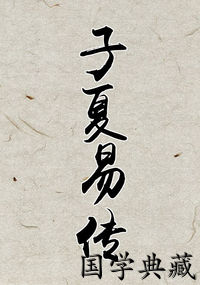 子夏易传
国学典藏